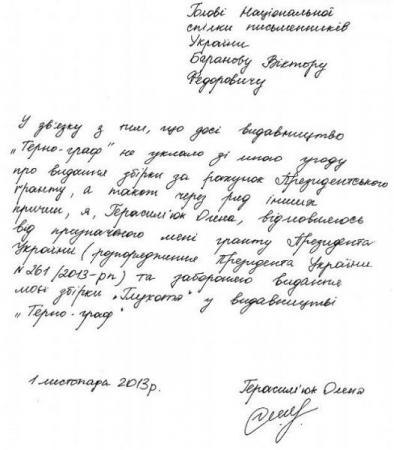 Голові Національної
спілки письменників
України
Баранову Віктору
Федоровичу
У зв'язку з тим, що досі видавництво
„Терно-граф" не уклало зі мною угоду
про видання збірки за рахунок Президентського
гранту, а також через ряд інших
причин, я, Герасим'юк Олена, відмовляюсь
від призначеного мені гранту Президента
України (розпорядження Президента України
№261/2013-рп) та забороняю видання
моєї збірки „Глухота" у видавництві
„Терно-граф"
1 листопада 2013р.
Герасим'юк Олена